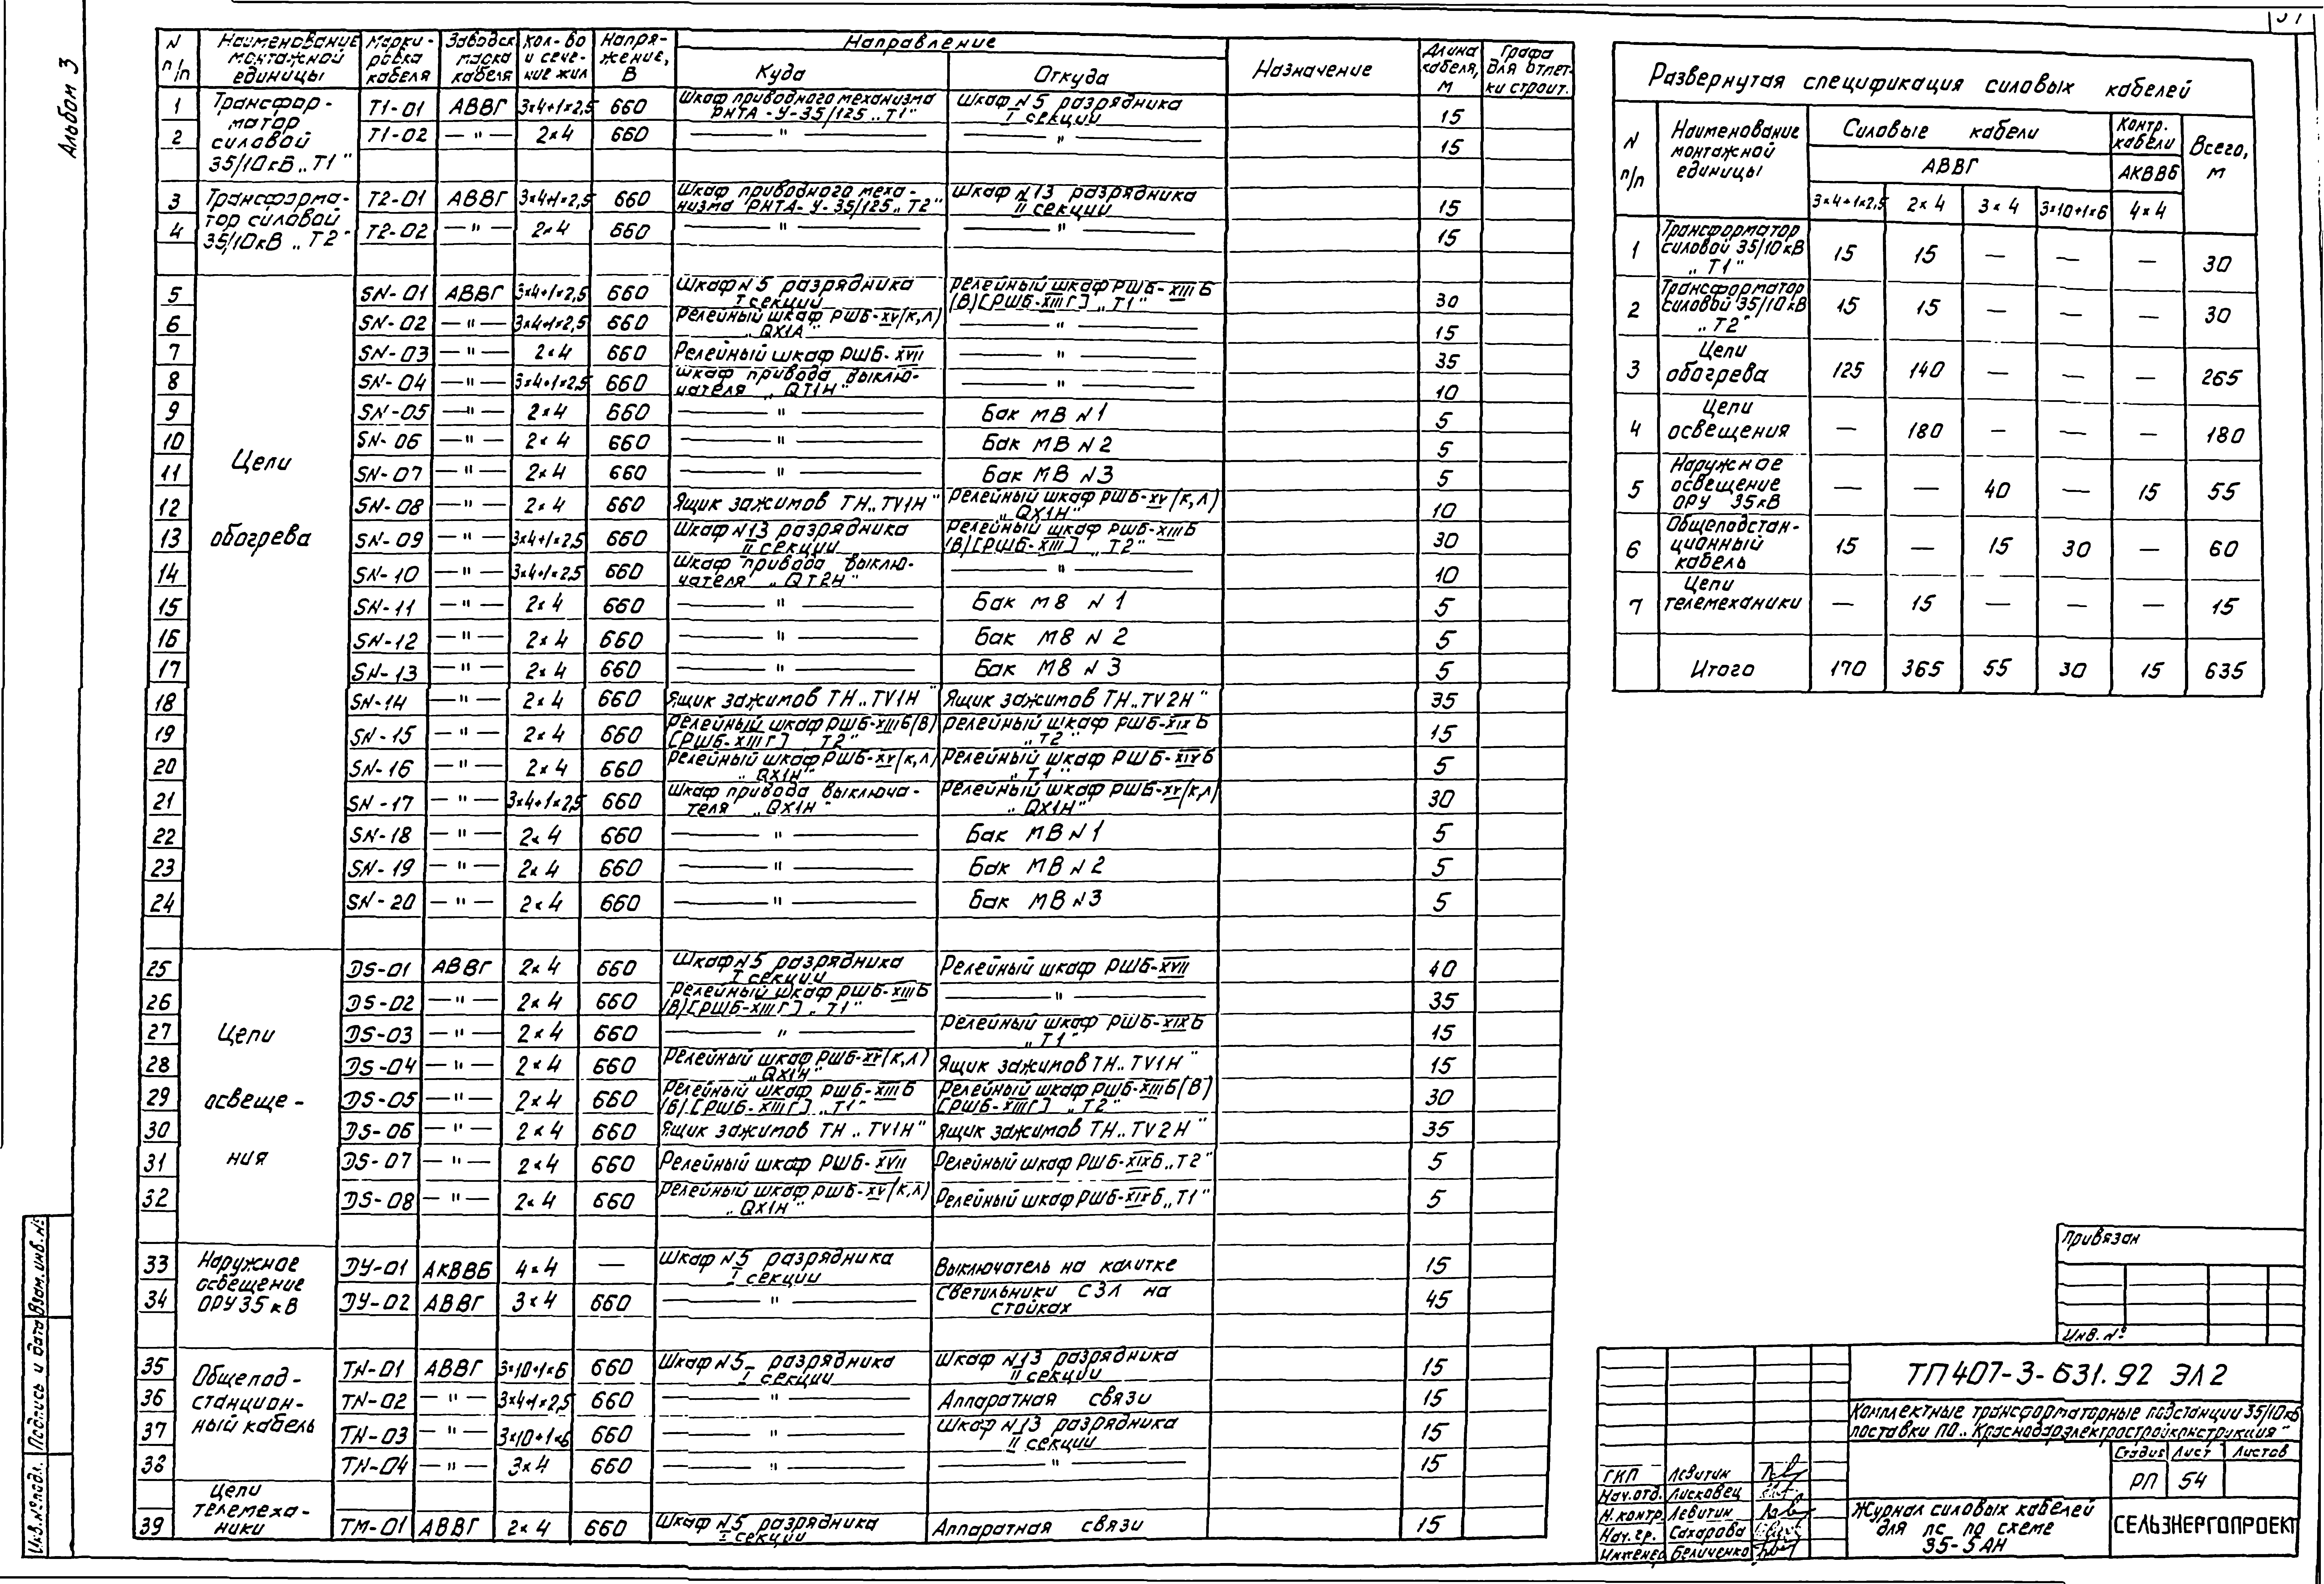 Альбом 3
N п/п | Наименование монтажной единицы | Марки-ровка кабеля | Заводск. марка кабеля | Кол-во и сече-ние жил | Напря-жение, В | Направление | Назначение | Длина кабеля, м | Графа для отмет-ки строит.
Куда | Откуда
1 | Трансфор-матор силовой 35/10кВ „Т1" | Т1-01 | АВВГ | 3×4+1×2,5 | 660 | Шкаф приводного механизма РНТА-У-35/125 „Т1" | Шкаф N5 разрядника I секции | 15
2 | Т1-02 | —"— | 2×4 | 660 | —"— | —"— | 15
3 | Трансформа-тор силовой 35/10кВ „Т2" | Т2-01 | АВВГ | 3×4+1×2,5 | 660 | Шкаф приводного меха-низма РНТА-У-35/125 „Т2" | Шкаф N13 разрядника II секции | 15
4 | Т2-02 | —"— | 2×4 | 660 | —"— | —"— | 15
5 | Цепи обогрева | SN-01 | АВВГ | 3×4+1×2,5 | 660 | Шкаф N5 разрядника I секции | Релейный шкаф РШБ-XIII Б (В)[РШБ-XIII Г] „Т1" | 30
6 | SN-02 | —"— | 3×4+1×2,5 | 660 | Релейный шкаф РШБ-XV(К,Л) „QX1А" | —"— | 15
7 | SN-03 | —"— | 2×4 | 660 | Релейный шкаф РШБ-XVII | —"— | 35
8 | SN-04 | —"— | 3×4+1×2,5 | 660 | Шкаф привода выклю-чателя „QT1Н" | —"— | 10
9 | SN-05 | —"— | 2×4 | 660 | —"— | Бак МВ N1 | 5
10 | SN-06 | —"— | 2×4 | 660 | —"— | Бак МВ N2 | 5
11 | SN-07 | —"— | 2×4 | 660 | —"— | Бак МВ N3 | 5
12 | SN-08 | —"— | 2×4 | 660 | Ящик зажимов ТН „TV1Н" | Релейный шкаф РШБ-XV(К,Л) „QX1Н" | 10
13 | SN-09 | —"— | 3×4+1×2,5 | 660 | Шкаф N13 разрядника II секции | Релейный шкаф РШБ-XIII Б (В)[РШБ-XIII] „Т2" | 30
14 | SN-10 | —"— | 3×4+1×2,5 | 660 | Шкаф привода выклю-чателя „QT2Н" | —"— | 10
15 | SN-11 | —"— | 2×4 | 660 | —"— | Бак МВ N1 | 5
16 | SN-12 | —"— | 2×4 | 660 | —"— | Бак МВ N2 | 5
17 | SN-13 | —"— | 2×4 | 660 | —"— | Бак МВ N3 | 5
18 | SN-14 | —"— | 2×4 | 660 | Ящик зажимов ТН „TV1Н" | Ящик зажимов ТН „TV2Н" | 35
19 | SN-15 | —"— | 2×4 | 660 | Релейный шкаф РШБ-XIII Б(В) [РШБ-XIII Г] „Т2" | Релейный шкаф РШБ-XIX Б „Т2" | 15
20 | SN-16 | —"— | 2×4 | 660 | Релейный шкаф РШБ-XV(К,Л) „QX1Н" | Релейный шкаф РШБ-XIV Б „Т1" | 5
21 | SN-17 | —"— | 3×4+1×2,5 | 660 | Шкаф привода выключа-теля „QX1Н" | Релейный шкаф РШБ-XV(К,Л) „QX1Н" | 30
22 | SN-18 | —"— | 2×4 | 660 | —"— | Бак МВ N1 | 5
23 | SN-19 | —"— | 2×4 | 660 | —"— | Бак МВ N2 | 5
24 | SN-20 | —"— | 2×4 | 660 | —"— | Бак МВ N3 | 5
25 | Цепи освеще-ния | DS-01 | АВВГ | 2×4 | 660 | Шкаф N5 разрядника I секции | Релейный шкаф РШБ-XVII | 40
26 | DS-02 | —"— | 2×4 | 660 | Релейный шкаф РШБ-XIII Б (В)[РШБ-XIII Г] „Т1" | —"— | 35
27 | DS-03 | —"— | 2×4 | 660 | —"— | Релейный шкаф РШБ-XIX Б „Т1" | 15
28 | DS-04 | —"— | 2×4 | 660 | Релейный шкаф РШБ-XV(К,Л) „QX1Н" | Ящик зажимов ТН „TV1Н" | 15
29 | DS-05 | —"— | 2×4 | 660 | Релейный шкаф РШБ-XIII Б (Б).[РШБ-XIII Г] „Т1" | Релейный шкаф РШБ-XIII Б(В) [РШБ-XIII Г] „Т2" | 30
30 | DS-06 | —"— | 2×4 | 660 | Ящик зажимов ТН „TV1Н" | Ящик зажимов ТН „TV2Н" | 35
31 | DS-07 | —"— | 2×4 | 660 | Релейный шкаф РШБ-XVII | Релейный шкаф РШБ-XIX Б „Т2" | 5
32 | DS-08 | —"— | 2×4 | 660 | Релейный шкаф РШБ-XV(К,Л) „QX1Н" | Релейный шкаф РШБ-XIX Б „Т1" | 5
33 | Наружное освещение ОРУ 35кВ | DУ-01 | АКВВБ | 4×4 | — | Шкаф N5 разрядника I секции | Выключатель на калитке | 15
34 | DУ-02 | АВВГ | 3×4 | 660 | —"— | Светильники СЗЛ на стойках | 45
35 | Общепод-станцион-ный кабель | TN-01 | АВВГ | 3×10+1×6 | 660 | Шкаф N5 разрядника I секции | Шкаф N13 разрядника II секции | 15
36 | TN-02 | —"— | 3×4+1×2,5 | 660 | —"— | Аппаратная связи | 15
37 | TN-03 | —"— | 3×10+1×6 | 660 | —"— | Шкаф N13 разрядника II секции | 15
38 | TN-04 | —"— | 3×4 | 660 | —"— | —"— | 15
39 | Цепи телемеха-ники | ТМ-01 | АВВГ | 2×4 | 660 | Шкаф N5 разрядника I секции | Аппаратная связи | 15
Развернутая спецификация силовых кабелей
N п/п | Наименование монтажной единицы | Силовые кабели | Контр. кабели | Всего, м
АВВГ | АКВВБ
3×4+1×2,5 | 2×4 | 3×4 | 3×10+1×6 | 4×4
1 | Трансформатор силовой 35/10кВ „Т1" | 15 | 15 | — | — | — | 30
2 | Трансформатор силовой 35/10кВ „Т2" | 15 | 15 | — | — | — | 30
3 | Цепи обогрева | 125 | 140 | — | — | — | 265
4 | Цепи освещения | — | 180 | — | — | — | 180
5 | Наружное освещение ОРУ 35кВ | — | — | 40 | — | 15 | 55
6 | Общеподстан-ционный кабель | 15 | — | 15 | 30 | — | 60
7 | Цепи телемеханики | — | 15 | — | — | — | 15
Итого | 170 | 365 | 55 | 30 | 15 | 635
Привязан
Инв. №
ТП 407-3-631.92 ЭЛ2
Комплектные трансформаторные подстанции 35/10кВ
поставки ПО „Краснодарэлектростройконструкция"
Стадия | Лист | Листов
РП | 54
ГИП | Левитин
Нач.отд. | Лисковец
Н.контр. | Левитин
Нач.гр. | Сахарова
Инженер | Беличенко
Журнал силовых кабелей
для ПС по схеме
35-5АН
СЕЛЬЭНЕРГОПРОЕКТ
Инв.№ подл. | Подпись и дата | Взам.инв.№